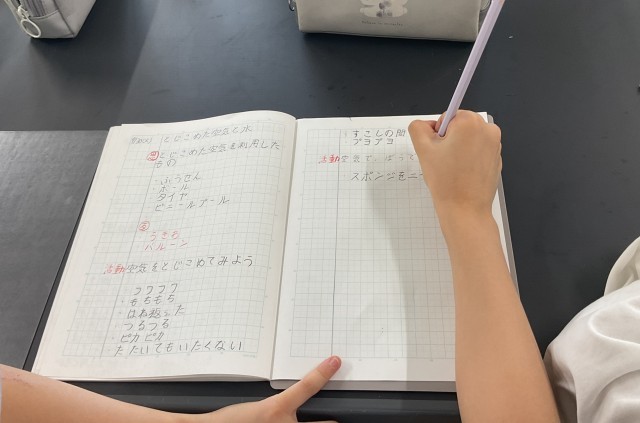 とじこめた空気と水
とじこめた空気を利用した
もの
・ふうせん
ボール
タイヤ
ビニールプール
うきわ
バルーン
活動 空気をとじこめてみよう
フワフワ
・もちもち
・はね返った
つるつる
ピカピカ
たたいてもいたくない
すこしの
プヨプヨ
活動 空気で、
スポンジを二つ